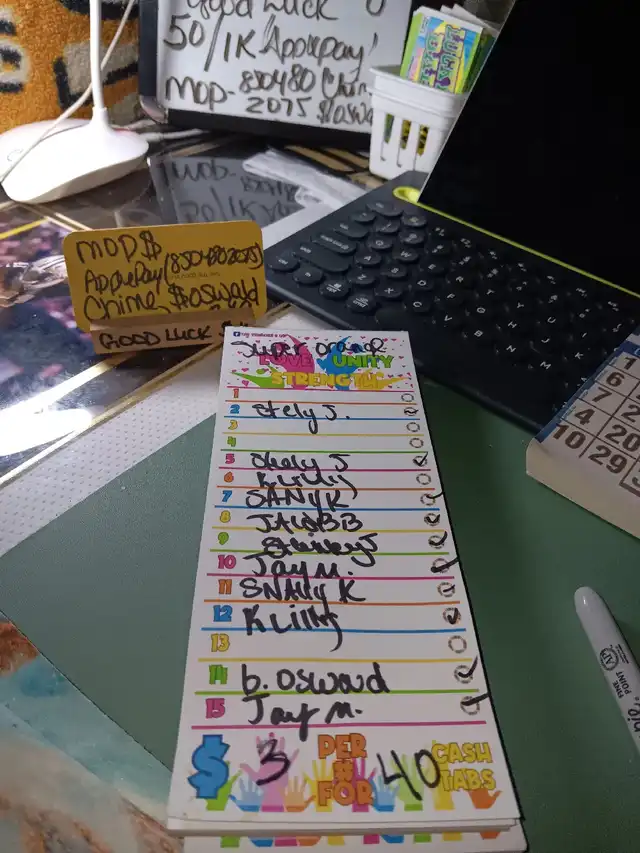 Good Luck
50/1K "Applepay"
MOP- 850480
2075
MOP $
ApplePay (8504802075)
Chime, $oswald
GOOD LUCK
Super Orange
LOVE UNITY
STRENGTH
1
2 Stely J.
3
4
5 Stely J
6 Killij
7 SANYK
8 JACOBB
9
10 Jay M.
11 SNAYY K
12 Killij
13
14 b. Oswald
15 Jay M.
$ 3 PER # FOR 40 CASH TABS
FINE POINT
1
6
7 2
4 20
10 29 3